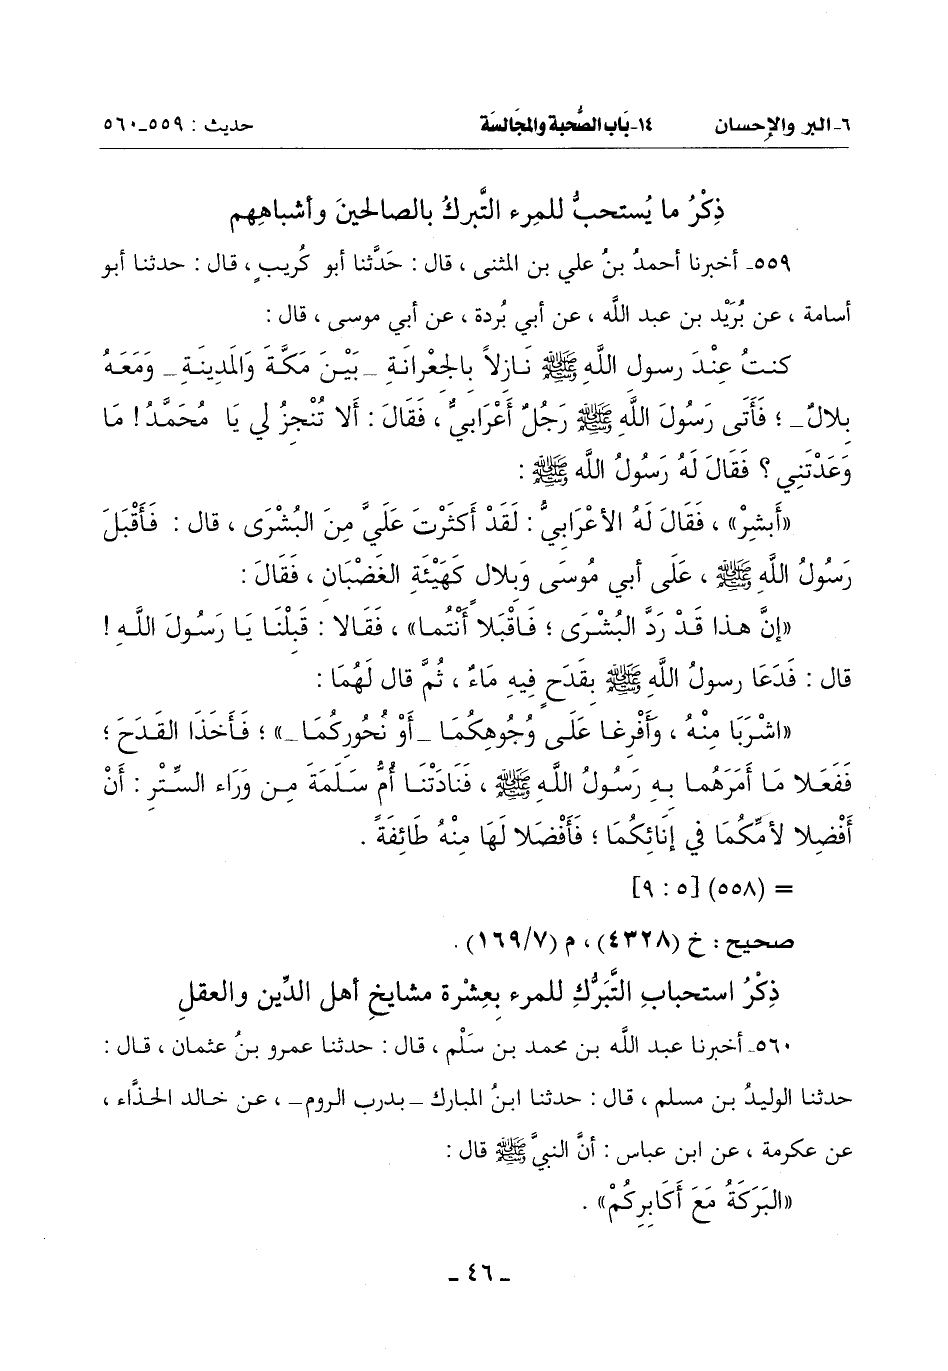 ٦ـ البر والإحسان ١٤-بَاب الصُّحبة والمجَالسَة حديث : ٥٥٩ـ٥٦٠
ذِكْرُ ما يُستحبُّ للمرء التَّبركُ بالصالحينَ وأشباهِهم
٥٥٩ـ أخبرنا أحمدُ بنُ علي بن المثنى ، قال : حَدَّثنا أبو كُريبٍ ، قال : حدثنا أبو
أسامة ، عن بُرَيْد بن عبد اللَّه ، عن أبي بُردة ، عن أبي موسى ، قال :
كنتُ عِنْدَ رسول اللَّهِ ﷺ نَازلاً بالجِعْرانَةِ ـ بَيْنَ مَكَّةَ وَالمَدِينَةِ ـ وَمَعَهُ
بِلالٌ ـ ؛ فَأَتَى رَسُولَ اللَّهِ ﷺ رَجُلٌ أَعْرَابيٌّ ، فَقَالَ : أَلا تُنْجِزُ لي يَا مُحَمَّدُ ! مَا
وَعَدْتَنِي ؟ فَقَالَ لَهُ رَسُولُ اللَّه ﷺ :
«أَبشِرْ» ، فَقَالَ لَهُ الأعْرَابيُّ : لَقَدْ أَكثَرْتَ عَلَيَّ مِنَ البُشْرَى ، قال : فَأَقْبَلَ
رَسُولُ اللَّهِ ﷺ ، عَلَى أبي مُوسَى وَبِلالٍ كَهَيْئَةِ الغَضْبَانِ ، فَقَالَ :
«إنَّ هـذا قَـدْ رَدَّ البُشْـرَى ؛ فَـاقْبَلاَ أَنْتُمـا» ، فَقَـالا : قَبِلْنَـا يَـا رَسُـولَ اللَّـهِ !
قال : فَدَعَا رسولُ اللَّهِ ﷺ بِقَدَحٍ فيهِ مَاءٌ ، ثُمَّ قال لَهُمَا :
«اشْرَبَا مِنْهُ ، وَأَفْرِغـا عَلَـى وُجُوهِكُمَـا ـ أَوْ نُحُورِكُمَـا ـ» ؛ فَـأَخَذَا القَـدَحَ ؛
فَفَعَـلا مَـا أَمَرَهُمـا بِـهِ رَسُـولُ اللَّـهِ ﷺ ، فَنَادَتْنَـا أُمُّ سَـلَمَةَ مِـن وَرَاء السِّـتْرِ : أَنْ
أَفْضِلا لأُمِّكُمَا في إنَائِكُمَا ؛ فَأَفْضَلا لَهَا مِنْهُ طَائِفَةً .
= (٥٥٨) [٥ : ٩]
صحيح : خ (٤٣٢٨) ، م (٧/١٦٩) .
ذِكْرُ استحبابِ التَّبَرُّكِ للمرء بِعِشْرة مشايخِ أهل الدِّين والعقلِ
٥٦٠ـ أخبرنا عبد اللَّه بن محمد بن سَلْم ، قال : حدثنا عمرو بنُ عثمان ، قال :
حدثنا الوليدُ بن مسلم ، قال : حدثنا ابنُ المبارك ـ بدرب الروم ـ ، عن خالد الحذَّاء ،
عن عكرمة ، عن ابن عباس : أنَّ النبيَّ ﷺ قال :
«البَرَكَةُ مَعَ أَكَابِرِكُمْ» .
ـ ٤٦ ـ